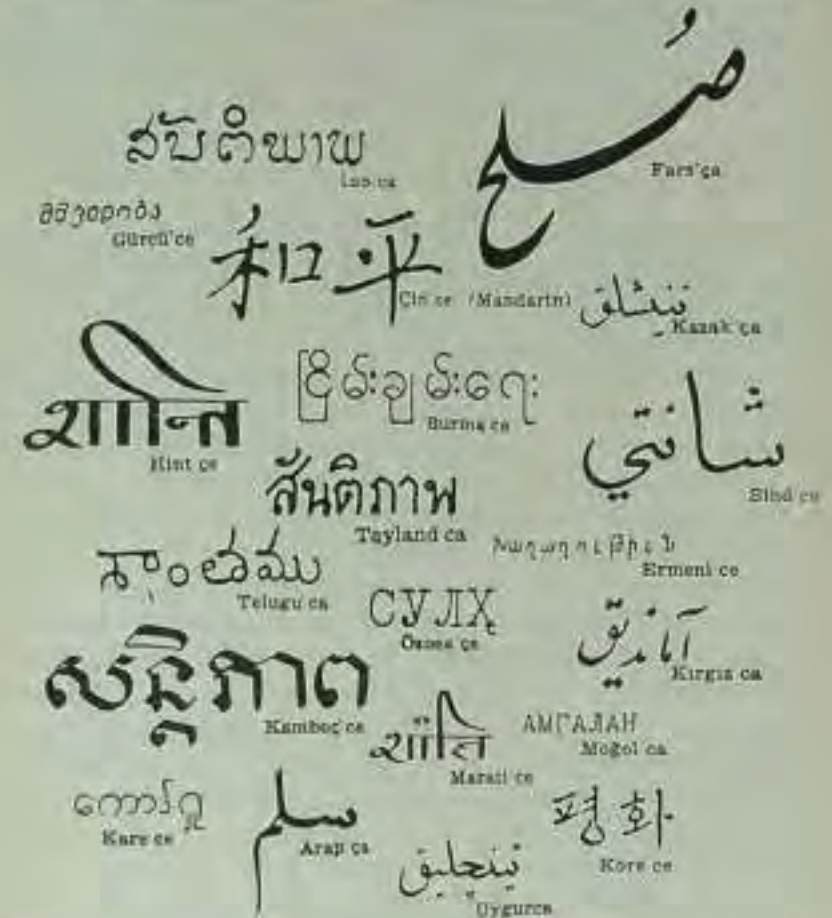 صُلح
Fars'ça
ສັນຕິພາບ
Lao ca
მშვიდობა
Gürcü'ce
和平
Çin ce (Mandarin)
تىنىشلىق
Kazak ça
शान्ति
Hint çe
ငြိမ်းချမ်းရေး
Burma ca
شانتي
Sind ce
สันติภาพ
Tayland ca
Խաղաղութիւն
Ermeni ce
శాంతము
Telugu ca
СУЛҲ
çe
Kırgız ca
សន្តិភាព
Kamboç ca
शांति
Marati ce
АМГАЛАН
Moğol ca
Kare ce
سلم
Arap ça
평화
Kore ce
Uygurca